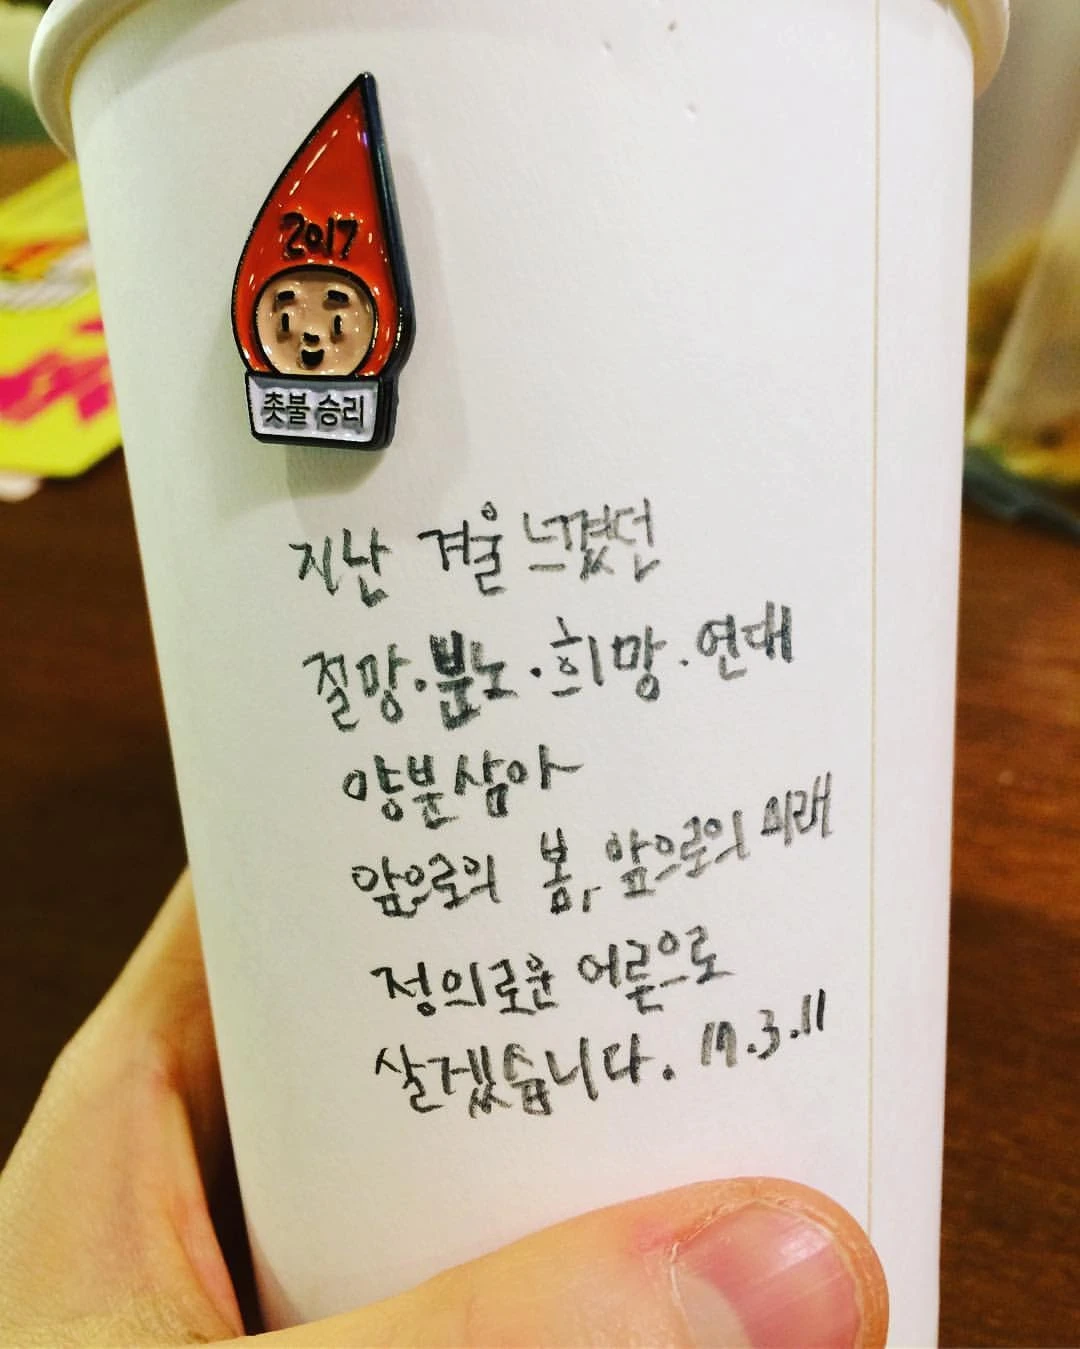 2017
촛불 승리
지난 겨울 느꼈던
절망·분노·희망·연대
양분삼아
앞으로의 봄, 앞으로의 미래
정의로운 어른으로
살겠습니다. 17.3.11